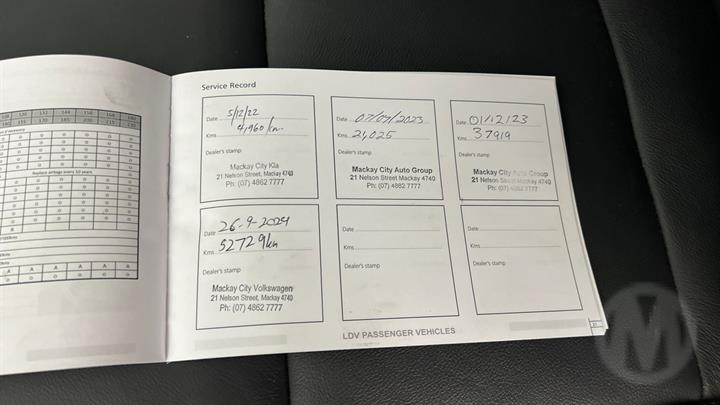 Service Record
Date 5/12/22
Kms 4,960 km
Dealer's stamp
Mackay City Kia
21 Nelson Street, Mackay 4740
Ph: (07) 4862 7777
Date 07/07/2023
Kms 21,025
Dealer's stamp
Mackay City Auto Group
21 Nelson Street Mackay 4740
Ph: (07) 4862 7777
Date 01/12/23
Kms 37919
Dealer's stamp
Mackay City Auto Group
21 Nelson Street Mackay 4740
Ph: (07) 4862 7777
Date 26-9-2024
Kms 52729km
Dealer's stamp
Mackay City Volkswagen
21 Nelson Street, Mackay 4740
Ph: (07) 4862 7777
Date
Kms
Dealer's stamp
Date
Kms
Dealer's stamp
LDV PASSENGER VEHICLES
Replace airbags every 10 years
M